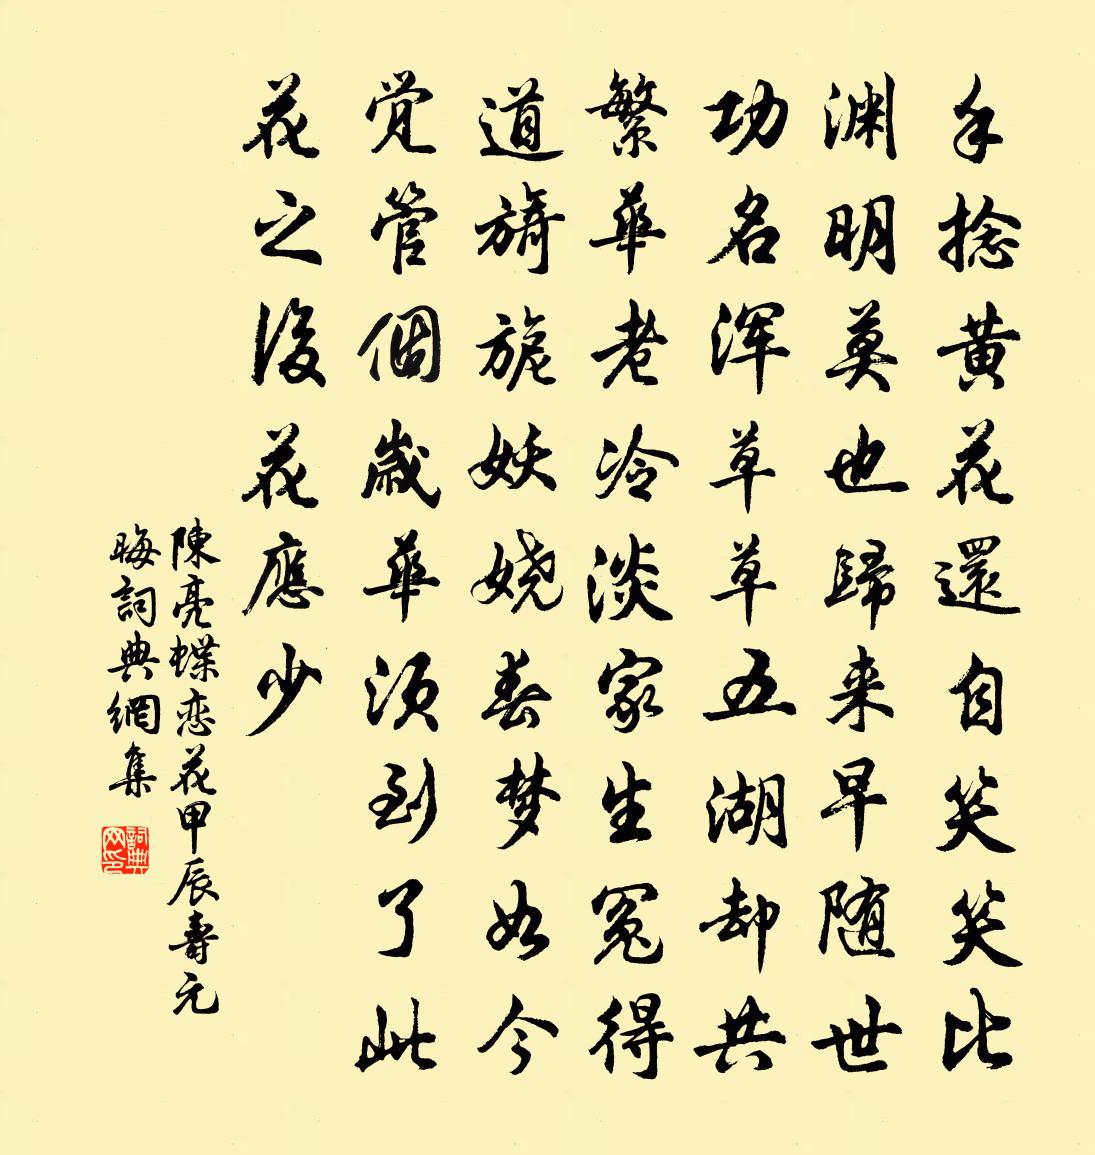 手捻黄花還自笑笑比
渊明莫也歸来早随世
功名浑草草五湖却共
繁華老冷淡家生冤得
道旖旎妖娆春梦如今
觉管個歲華须到了此
花之後花應少
陳亮蝶恋花甲辰壽元
晦詞典網集
詞典
网印